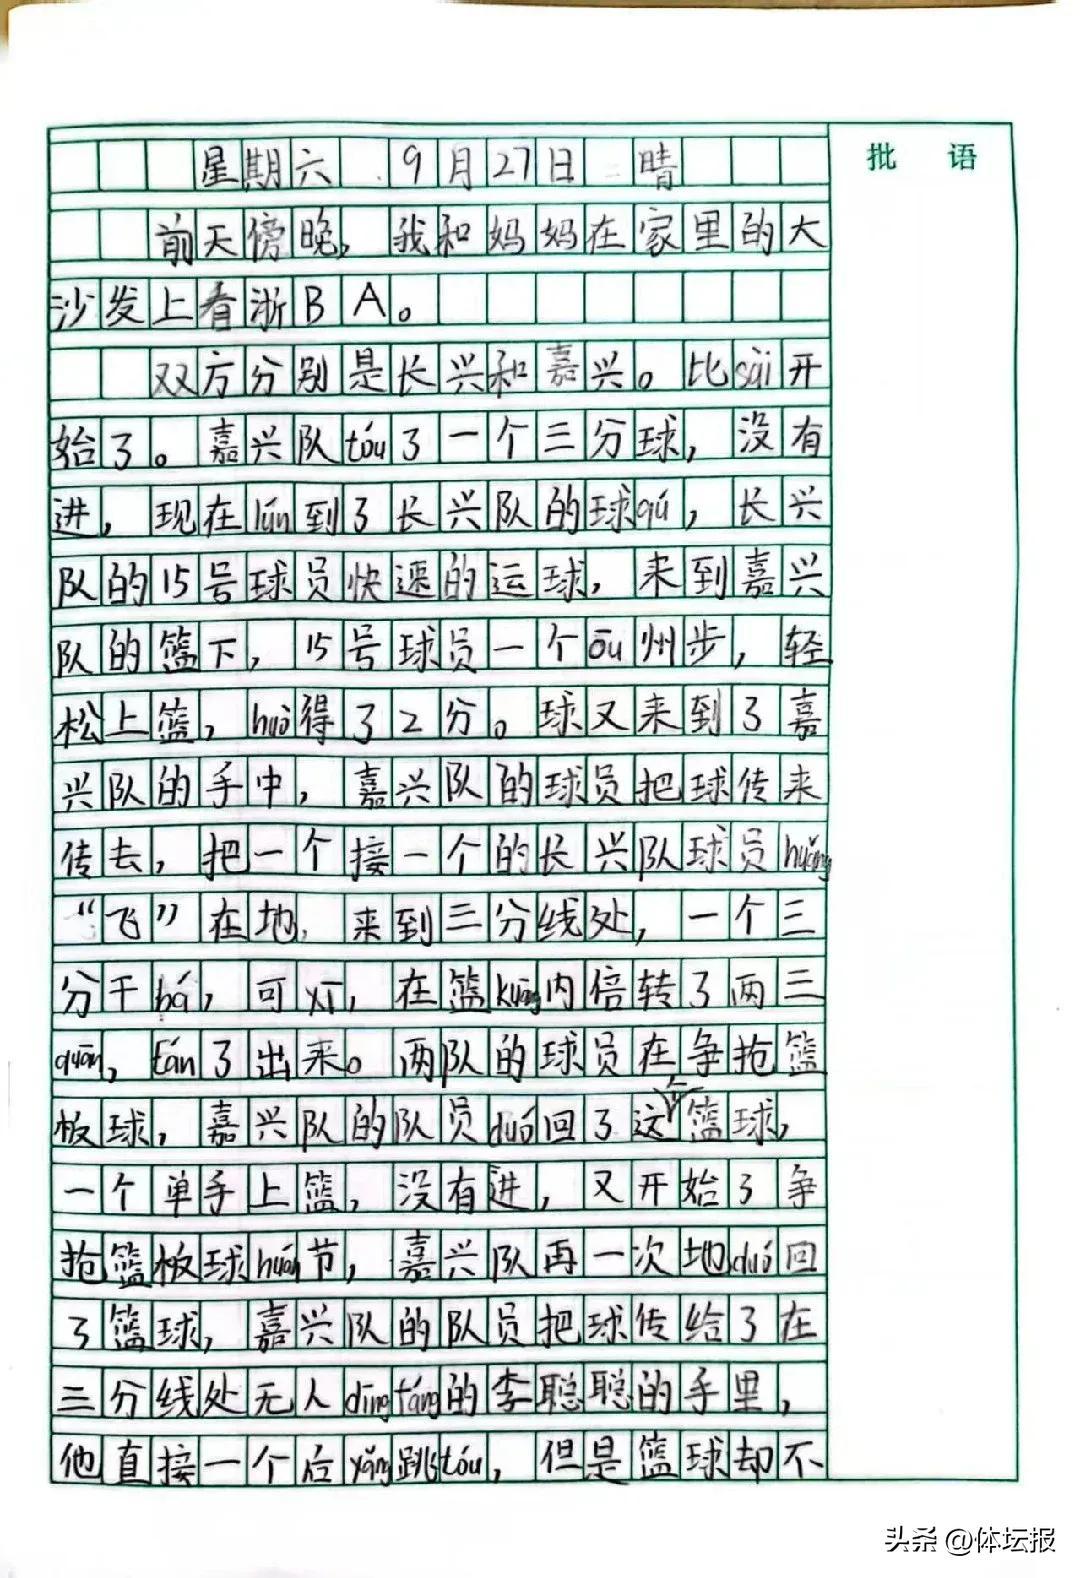 批 语
星期六 9月27日 晴
前天傍晚，我和妈妈在家里的大
沙发上看浙BA。
双方分别是长兴和嘉兴。比sài开
始了。嘉兴队tóu了一个三分球，没有
进，现在lún到了长兴队的球qiú，长兴
队的15号球员快速的运球，来到嘉兴
队的篮下，15号球员一个ōu州步，轻
松上篮，huò得了2分。球又来到了嘉
兴队的手中，嘉兴队的球员把球传来
传去，把一个接一个的长兴队球员huǎng
“飞”在地，来到三分线处，一个三
分干bá，可xī，在篮kuāng内倍转了两三
quān，tán了出来。两队的球员在争抢篮
板球，嘉兴队的队员duó回了这个篮球，
一个单手上篮，没有进，又开始了争
抢篮板球huán节，嘉兴队再一次地duó回
了篮球，嘉兴队的队员把球传给了在
三分线处无人dīng fáng的李聪聪的手里，
他直接一个后yǎng跳tóu，但是篮球却不
头条 @体坛报